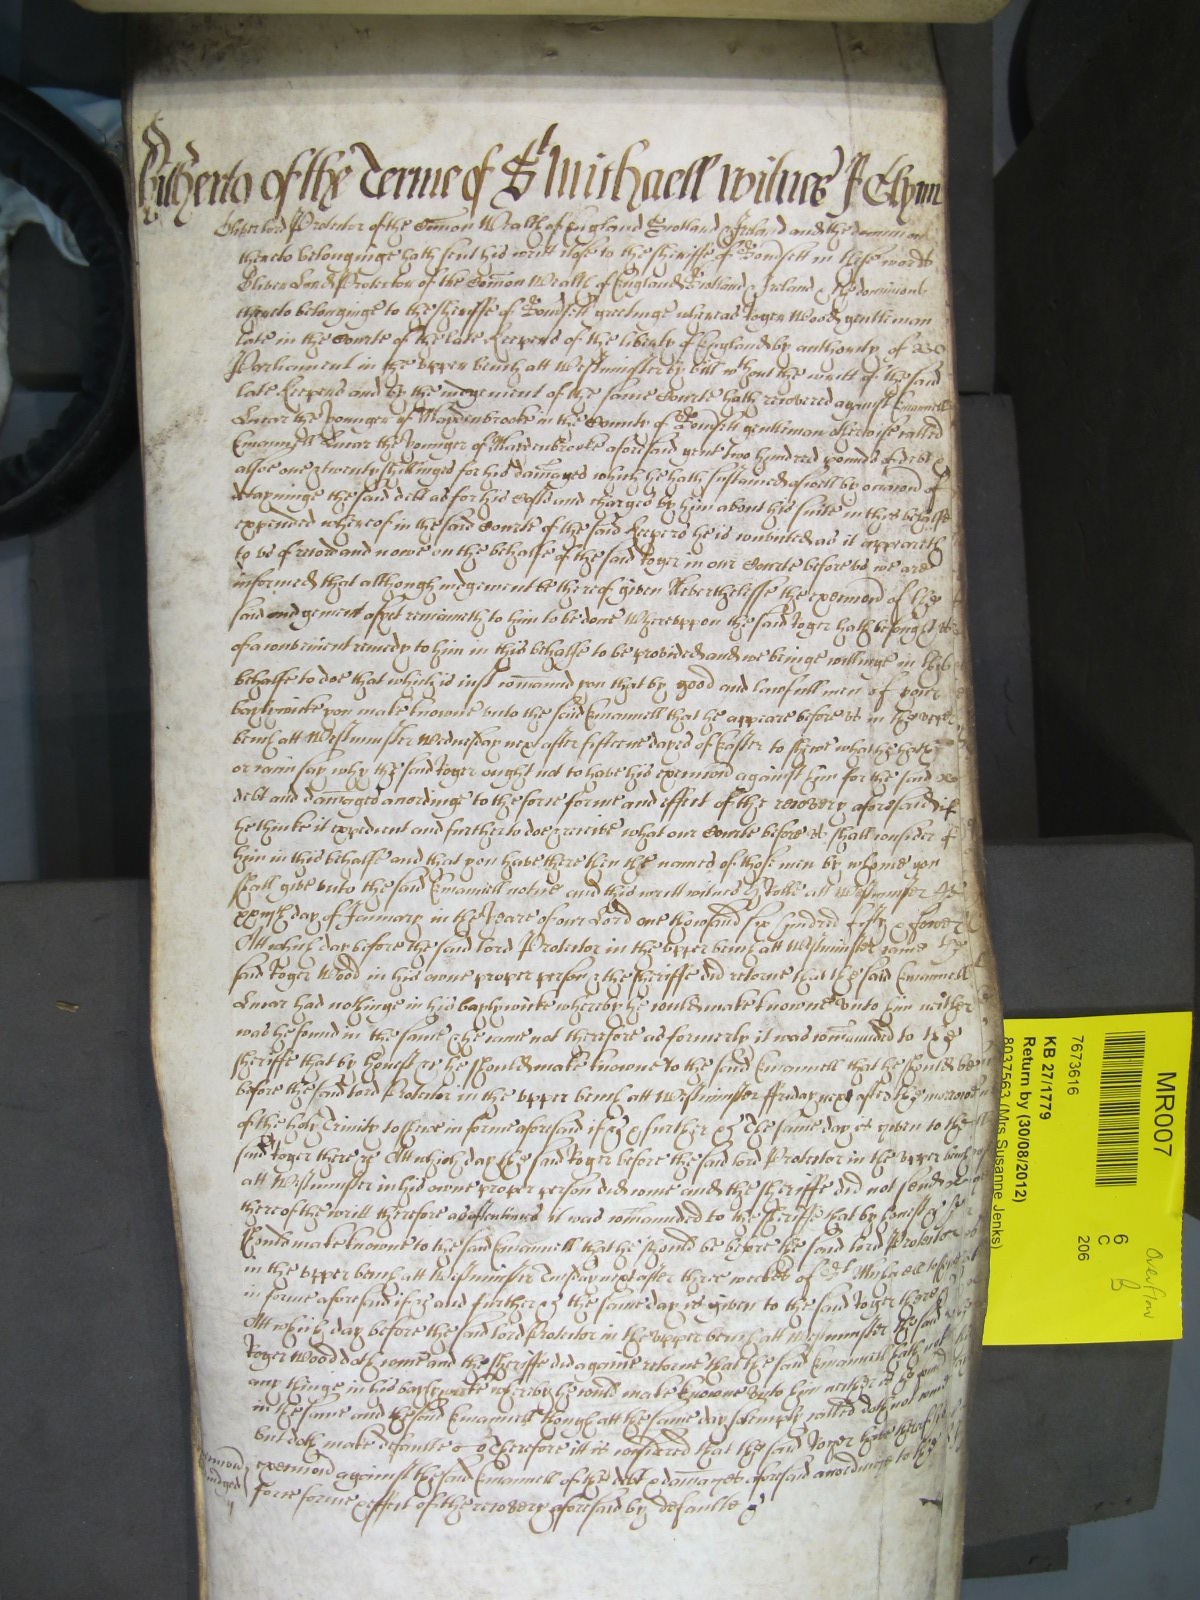 hitherto of the Terme of St Michaell witnes J Glynn
Oliver lord Protector of the Comon Wealth of England Scotland & Ireland and the dominions
thereto belonginge hath sent his writt close to the sheriffe of Somsett in these words
Oliver Lord Protector of the Comon Wealth of England Scotland & Ireland & the dominions
thereto belonginge to the sheriffe of Somsett greetinge whereas Roger Wood gentleman
late in the Courte of the late Keepers of the liberty of England by authority of
Parliament in the upper bench att Westminster by bill without the writt of the said
late Keepers and by the iudgement of the same Courte hath recovered against Emanuell
the younger of in the County of Somsett gentleman otherwise called
Emanuell the younger of aforesaid gent two hundred pounds of debt &
alsoe one & twenty shillinges for his damages which he hath susteined aswell by occasion of
detayninge the said debt as for his costs and charges by him about his suite in this behalfe
expended whereof in the said Courte of the said Keepers he is convicted as it appeareth
to us of record and nowe on the behalfe of the said Roger in our Courte before us we are
informed that although iudgement be thereof given Neverthelesse the execucion of the
said iudgement as yet remaineth to him to be done Whereuppon the said Roger hath besought us
of a convenient remedy to him in this behalfe to be provided and we beinge willinge in this
behalfe to doe that which is iust comaund you that by good and lawfull men of your
baylywicke you make knowne unto the said Emanuell that he appeare before us in the upper
bench att Westminster Wednesday next after fifteene dayes of Easter to shewe what he hath
or cann say why the said Roger ought not to have his execucion against him for the said
debt and damages accordinge to the force forme and effect of the recovery aforesaid if
he thinke it expedient and further to doe & receive what our Courte before us shall consider of
him in this behalfe and that you have there then the names of those men by whome you
shall give unto the said Emanuell notice and this writt witnes H Rolle att Westminster the
day of January in the yeare of our Lord one thowsand six hundred fifty & fower
Att which day before the said lord Protector in the upper bench att Westminster came the
said Roger Wood in his owne proper person & the sheriffe did retorne that the said Emanuell
had nothinge in his baylywicke whereby he could make knowne unto him neither
was he found in the same & he came not therefore as formerly it was comaunded to the
sheriffe that by honest &c he should make knowne to the said Emanuell that he should be
before the said lord Protector in the upper bench att Westminster ffriday next after the morrowe
of the holy Trinity to shewe in forme aforesaid if &c & further &c The same day is given to the
said Roger there &c Att which day the said Roger before the said lord Protector in the upper bench
att Westminster in his owne proper person did come and the sheriffe did not send
thereof the writt therefore as oftentimes it was comaunded to the sheriffe that by honest &c he
should make knowne to the said Emanuell that he should be before the said lord Protector
in the upper bench att Westminster Tuesday next after three weekes of St Michaell to shewe
in forme aforesaid if &c and further &c the same day is given to the said Roger there
Att which day before the said lord Protector in the upper bench att Westminster the said
Roger Wood doth come and the sheriffe did againe retorne that the said Emanuell hath not
any thinge in his baylywicke whereby he could make knowne unto him neither is he found
in the same and the said Emanuell though att the same day solempnly called doth not come
but doth make defaulte Therefore itt is considered that the said Roger have thereof his
execucion against the said Emanuell of the debt & damages aforesaid accordinge to the
force forme & effect of the recovery aforesaid by defaulte &c
MR007
7673616
KB 27/1779
Return by (30/08/2012)
8037563 (Mrs Susanne Jenks)
6
C
206
Overflow
B